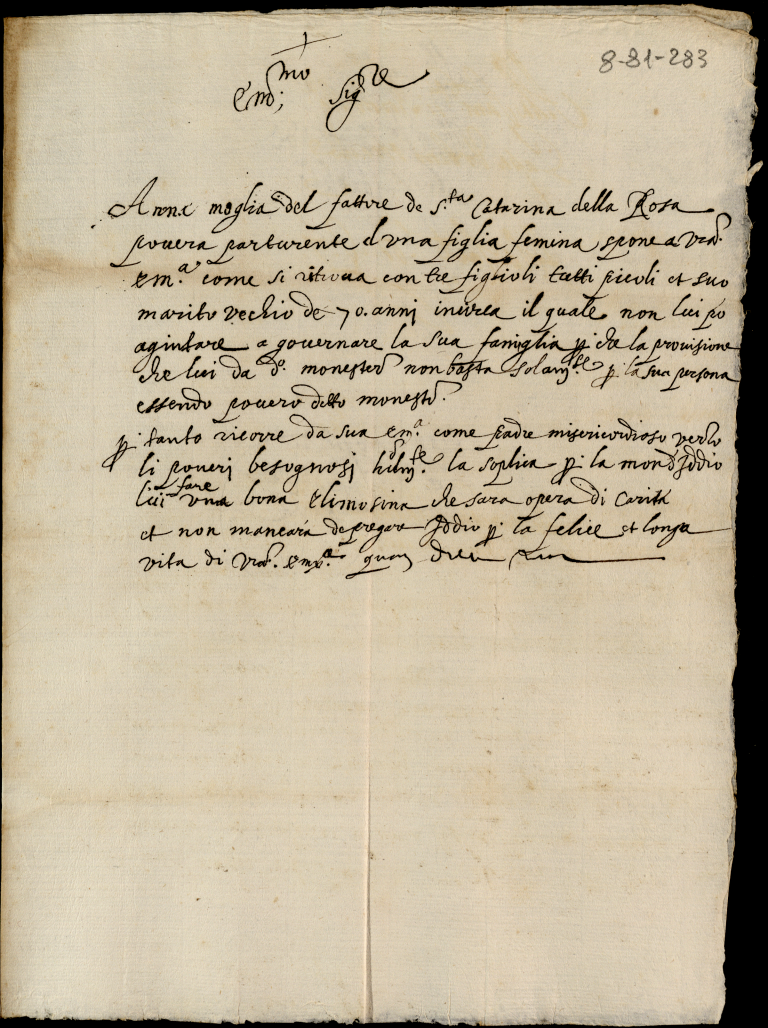 8-81-283
+
Em:mo Sigre
Anna moglia del fattore de S.ta Catarina della Rosa
povera parturente d'una figlia femina spone a vra.
em.a come si ritrova con tre figlioli tutti picoli et suo
marito vechio de 70. anni incirca il quale non lui po
agiutare a governare la sua famiglia p. che la provisione
che lui da d.o monestero non basta solam.te p. la sua persona
essendo povero detto monest.o
p. tanto ricorre da sua em.a come padre misericordioso verso
li poveri besognosi hum.te la soplica p. l'amor d'Iddio
lui fare una bona elimosina che sara opera di carita
et non mancara de pregare Iddio p. la felice et longa
vita di vra. em.a quam Deus